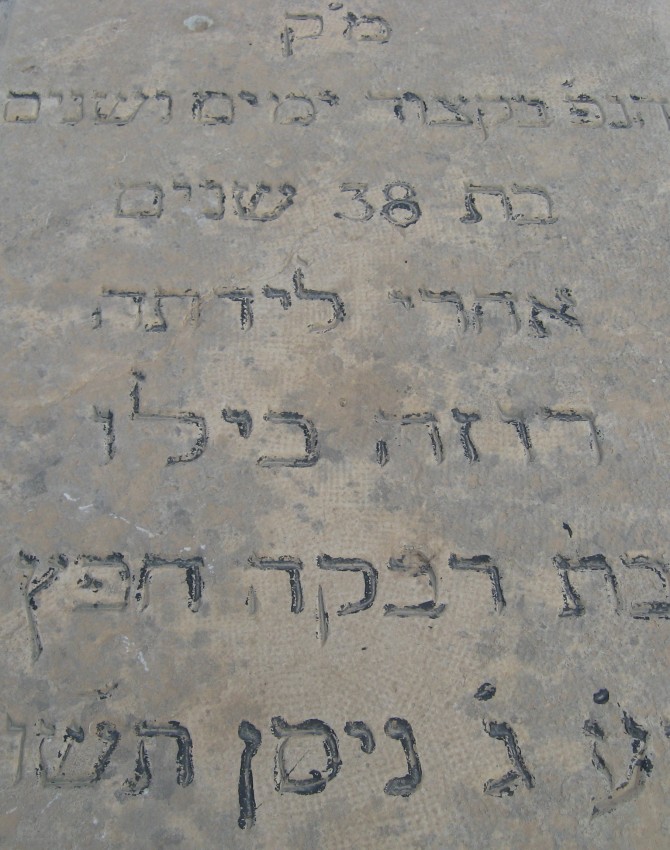 מ'ק
הנפ' בקצור ימים ושנים
בת 38 שנים
אחרי לידתה
רוזה בילו
בת' רבקה חפץ
ע' ג' ניסן תש'ו